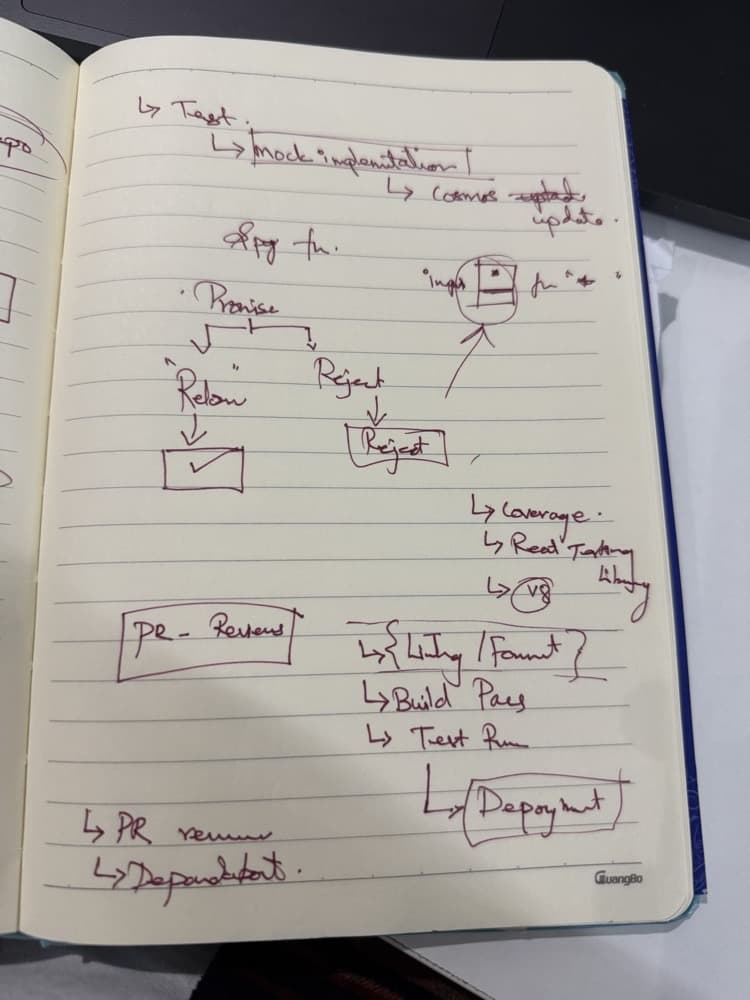 ↳ Test.
↳ mock implemitation
↳ cosmos
update.
Spy fn.
input * fn " "
Promise
Reject
Reject
↳ Coverage.
↳ React Testing
Library
↳ V8
PR - Reviews
↳ { Linting / Format }
↳ Build Pass
↳ Test Run
↳ Depoyment
↳ PR review
↳ Dependabot.
GuangBo